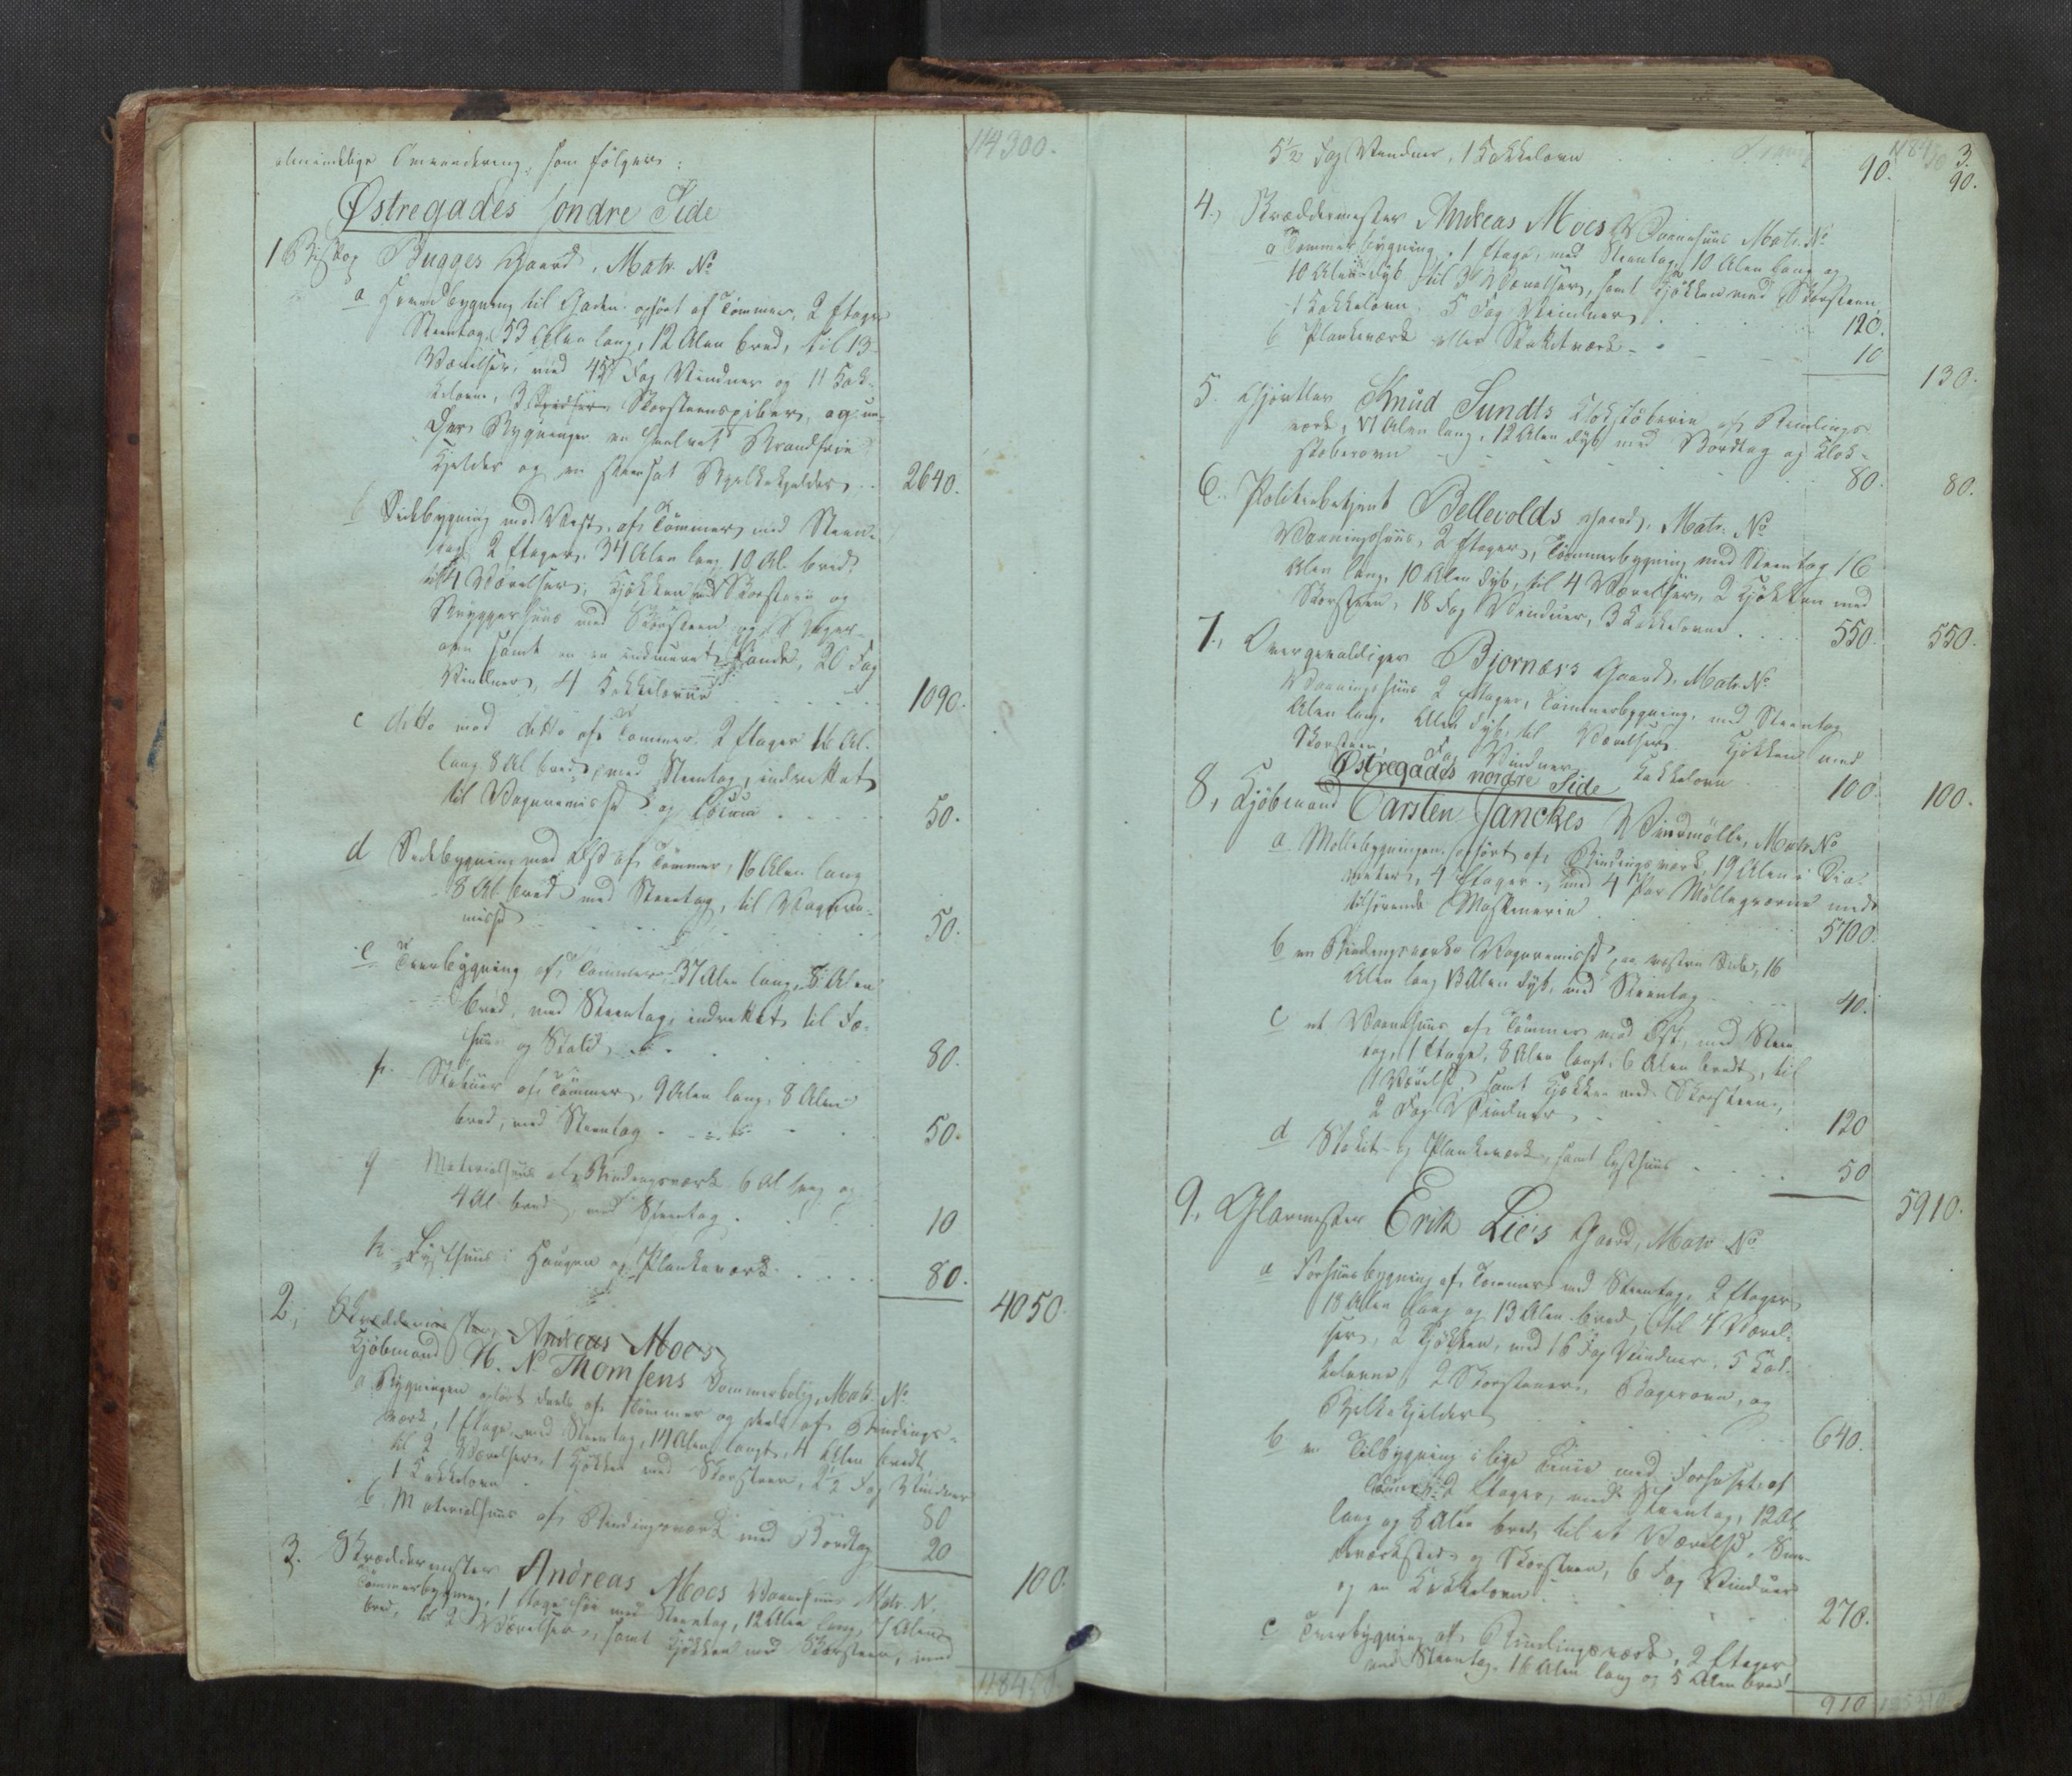 114300.
almindelige Omvurdering, som følger:
Østregades søndre Side
1 Biskop Bugges Gaard, Matr. No
a Hovedbygning til Gaden opført af Tømmer, 2 Etager
Steentag, 53 Alen lang, 12 Alen bred, til 13
Værelser, med 45 Fag Vinduer og 11 Kak-
kelovne, 3 Skorsteenspiber, og un-
der Bygningen en hvelvet Brandfrie
Kjelder og en steensat Bjelkekjelder 2640.
b Sidebygning mod Vest, af Tømmer med Steen-
tag 2 Etager, 34 Alen lang 10 Al. bred,
til 4 Værelser, Kjøkken med Skorsteen og
Bryggerhuus med Skorsteen og Bager-
ovn samt en indmuret Pande, 20 Fag
Vinduer, 4 Kakkelovne 1090.
c ditto mod ditto af Tømmer 2 Etager 16 Al.
lang 8 Al bred, med Steentag, indrettet
til Vognremisse og Locum 50.
d Sidebygning mod Øst af Tømmer, 16 Alen lang
8 Al. bred med Steentag, til Vognre-
misse 50.
e Tverbygning af Tømmer, 37 Alen lang, 8 Alen
bred, med Steentag, indrettet til Fæ-
huus og Stald 80.
f. Stabuur af Tømmer, 9 Alen lang, 8 Alen
bred, med Steentag 50.
g Materialhuus af Bindingsværk 6 Al lang og
4 Al. bred med Steentag 10
h Lysthuus i Haugen og Plankeværk 80.
4050.
2. Skræddermester Andreas Moes
Kjøbmand H. N. Thomsens Sommerbolig, Matr. No
a Bygningen opført deels af Tømmer og deels af Bindings-
værk, 1 Etage, med Steentag, 14 Alen langt, 4 Alen bredt
til 2 Værelser, 1 Kjøkken med Skorsteen, 2½ Fag Vinduer
1 Kakkelovn 80
b Materialhuus af Bindingsværk med Bordtag 20
100.
3. Skræddermester Andreas Moes Vaanehuus Matr. N.
Tømmerbygning, 1 Etage høi med Steentag, 12 Alen lang, Alen
bred, til 2 Værelser, samt Kjøkken med Skorsteen, med
3.
5½ Fag Vinduer, 1 Kakkelovn 90. 90.
4., Skræddermester Andreas Moes Vaanehuus Matr. No
a Tømmerbygning, 1 Etage, med Steentag, 10 Alen lang og
10 Alen dyb til 3 Værelser, samt Kjøkken med Skorsteen,
1 Kakkelovn, 5 Fag Vinduer 120.
b Plankeværk eller Stakitværk 10
130.
5. Gjørtler Knud Sundts Klokstøberie af Bindings-
værk, Alen lang, 12 Alen dyb med Bordtag og Klok-
støberovn 80. 80.
6. Politiebetjent Bellevolds Gaard, Matr. No
Vaaningshuus, 2 Etager, Tømmerbygning med Steentag 16
Alen lang, 10 Alen dyb, til 4 Værelser, 2 Kjøkken med
Skorsteen, 18 Fag Vinduer, 3 Kakkelovne 550. 550.
7., Overgevaldiger Bjørnæs's Gaard, Matr. No.
Vaaningshuus 2 Etager, Tømmerbygning, med Steentag
Alen lang, Alen dyb, til Værelser Kjøkken med
Skorsteen, Fag Vinduer Kakkelovn 100. 100.
Østregades nordre Side
8, Kjøbmand Carsten Janckes Vindmølle, Matr. No
a Møllebygningen, opført af Bindingsværk, 19 Alen i Dia-
meter, 4 Etager, med 4 Par Møllegværne med
tilhørende Maskinerie 5700.
b en Bindingsværks Vognremisse, paa vestre Side, 16
Alen lang 13 Alen dyb, med Steentag 40.
c et Vaanehuus af Tømmer mod Øst, med Steen-
tag, 1 Etage, 8 Alen langt, 6 Alen bredt, til
1 Værelse, samt Kjøkken med Skorsteen,
2 Fag Vinduer 120
d Stakit- og Plankeværk, samt Lysthuus 50
5910.
9. Glarmester Erik Lie's Gaard, Matr No.
a Forhuusbygning af Tømmer med Steentag, 2 Etager
18 Alen lang og 13 Alen bred, til 7 Værel-
ser, 2 Kjøkken, med 16 Fag Vinduer, 5 Kak-
kelovne, 2 Skorstener, Bagerovn, og
Bjelkekjelder 640.
b en Tilbygning i lige Linie med Forhuset af
Tømmer 2 Etager, med Steentag, 12 Al.
lang og 8 Alen bred, til et Værelse,
og Skorsteen, 6 Fag Vinduer
og en Kakkelovn 270.
c Tverbygning af Bindingsværk, 2 Etager
med Steentag, 16 Alen lang og 5 Alen bred
910